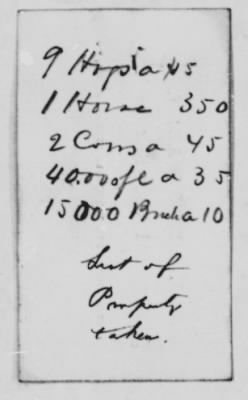 9 Hogs a $5
1 Horse 350
2 Cows a 45
40.000 fl a 35
15000 Bricks a 10
List of
Property
taken.